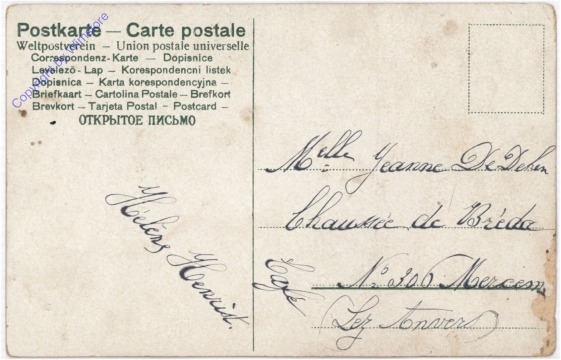 Postkarte — Carte postale
Weltpostverein – Union postale universelle
Correspondenz-Karte – Dopisnice
Levelező - Lap – Korespondencni listek
Dopisnica – Karta korespondencyjna –
Briefkaart – Cartolina Postale – Brefkort
Brevkort – Tarjeta Postal – Postcard –
ОТКРЫТОЕ ПИСЬМО
Hélène Henriet.
Melle Jeanne De
Chaussée de Bréda
Café No 306 Mercem
(Lez Anvers)